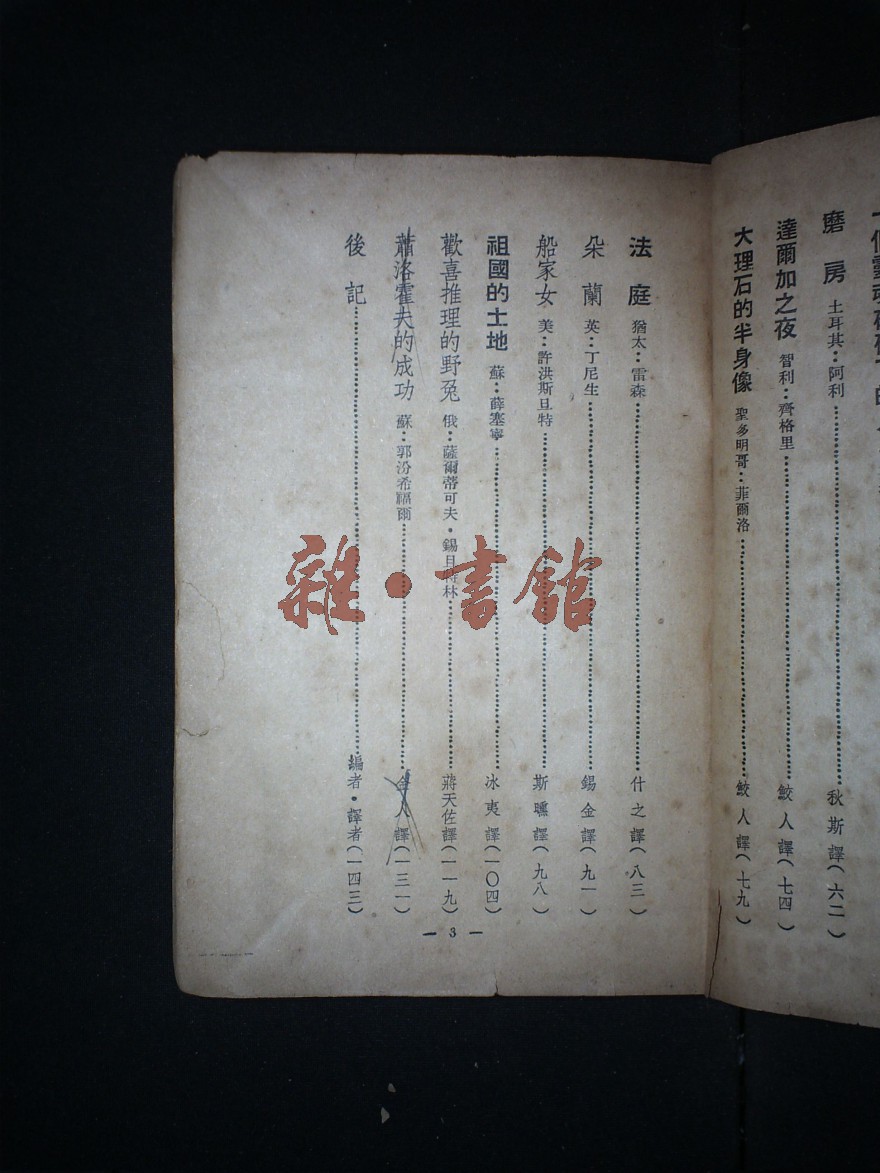 磨房 土耳其：阿利……秋斯譯（六二）
達爾加之夜 智利：齊格里……鮫人譯（七四）
大理石的半身像 聖多明哥：菲爾洛……鮫人譯（七九）
法庭 猶太：雷森……什之譯（八三）
朵蘭 英：丁尼生……錫金譯（九一）
船家女 美：許洪斯旦特……斯曛譯（九八）
祖國的土地 蘇：薛塞寧……冰夷譯（一〇四）
歡喜推理的野兔 俄：薩爾蒂可夫・錫且特林……蔣天佐譯（一一九）
蕭洛霍夫的成功 蘇：郭汾希福爾……金人譯（一三一）
後記……編者・譯者（一四三）
— 3 —
雜・書館